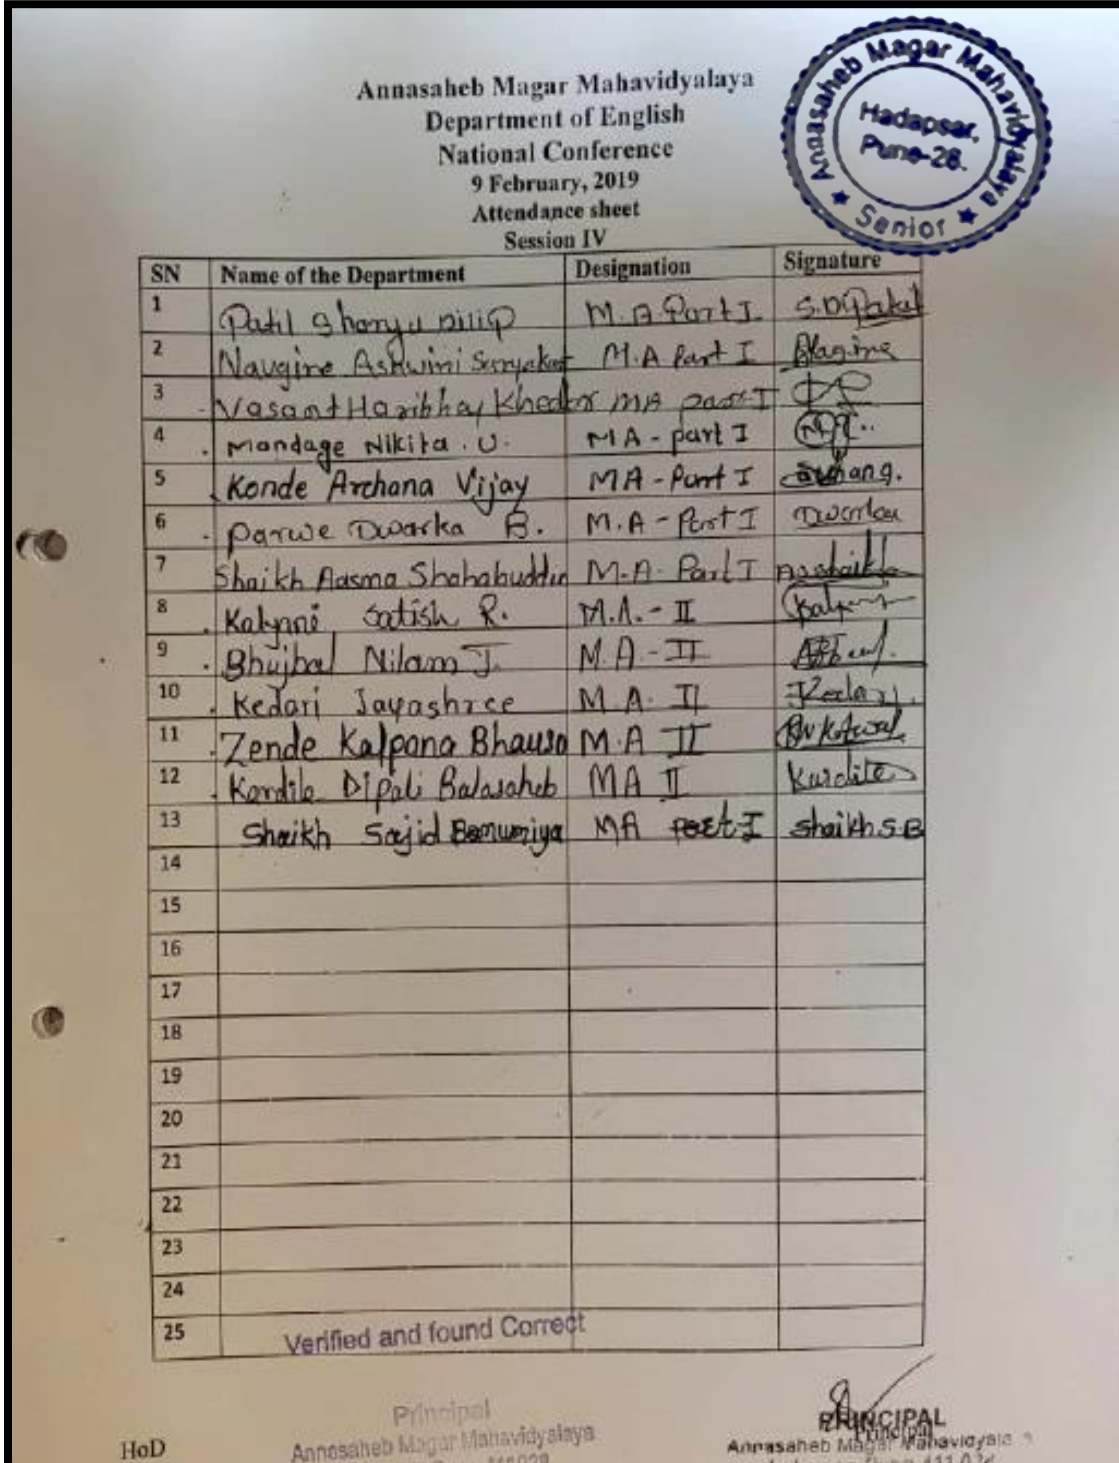 Annasaheb Magar Mahavidyalaya
Department of English
National Conference
9 February, 2019
Attendance sheet
Session IV
Annasaheb Magar Mahavidyalaya
Hadapsar,
Pune-28.
★ Senior ★
SN Name of the Department Designation Signature
1 Patil Dilip M.A Part I S.D.Patil
2 Naugire Ashwini M.A Part I
3 Vasant Haribhau MA part I
4 Mandage Nikita. U. MA - part I
5 Konde Archana Vijay MA - Part I
6 Parwe Dwarka B. M.A - Part I Dwarka
7 Shaikh Aasma Shahabuddin M.A. Part I
8 Satish R. M.A. - II
9 Bhujbal Nilam J. M.A - II
10 Kedari Jayashree M A. II Kedari
11 Zende Kalpana M.A II
12 Kardile Dipali Balasaheb MA II Kardile
13 Shaikh Sajid MA Part I Shaikh S.B
14
15
16
17
18
19
20
21
22
23
24
25 Verified and found Correct
Principal
PRINCIPAL
Principal
HoD Annasaheb Magar Mahavidyalaya
Annasaheb Magar